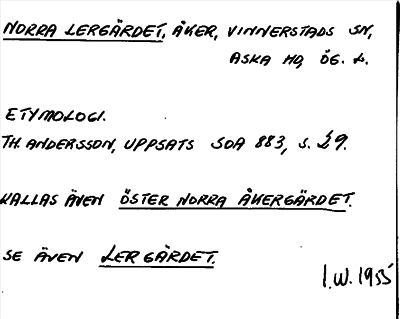 NORRA LERGÄRDET, ÅKER, VINNERSTADS SN,
ASKA HD, ÖG. L.
ETYMOLOGI.
TH. ANDERSSON, UPPSATS SOA 883, S. 29.
KALLAS ÄVEN ÖSTER NORRA ÅKERGÄRDET.
SE ÄVEN LERGÄRDET.
I.W. 1955